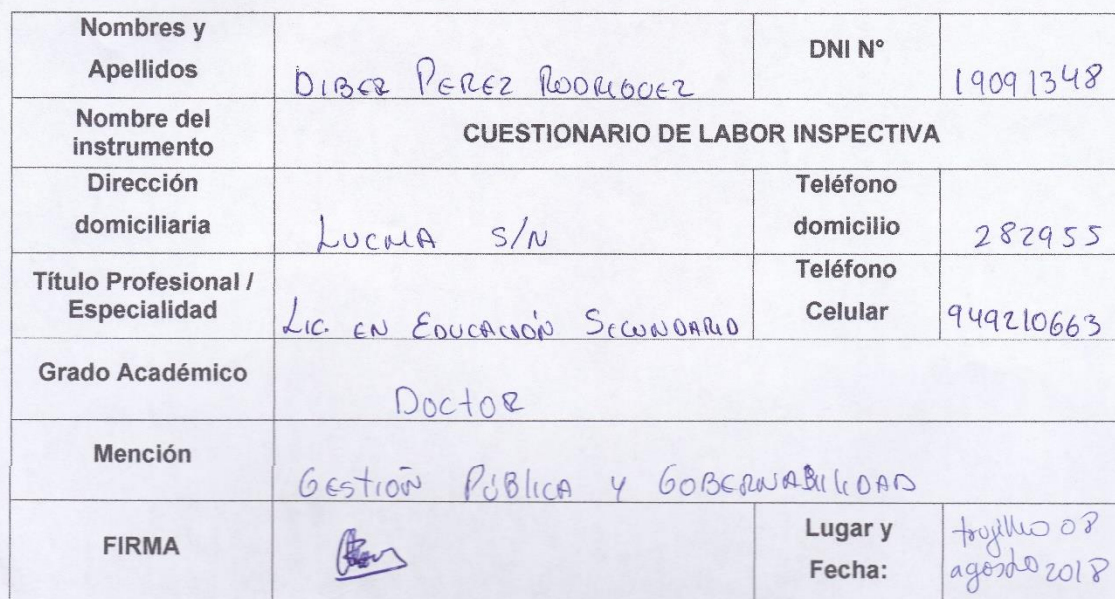 Nombres y
Apellidos
DIBER PEREZ RODRIGUEZ
DNI N°
19091348
Nombre del
instrumento
CUESTIONARIO DE LABOR INSPECTIVA
Dirección
domiciliaria
LUCMA S/N
Teléfono
domicilio
282955
Título Profesional /
Especialidad
LIC. EN EDUCACIÓN SECUNDARIA
Teléfono
Celular
949210663
Grado Académico
DOCTOR
Mención
GESTIÓN PÚBLICA Y GOBERNABILIDAD
FIRMA
Lugar y
Fecha:
trujillo 08
agosto 2018